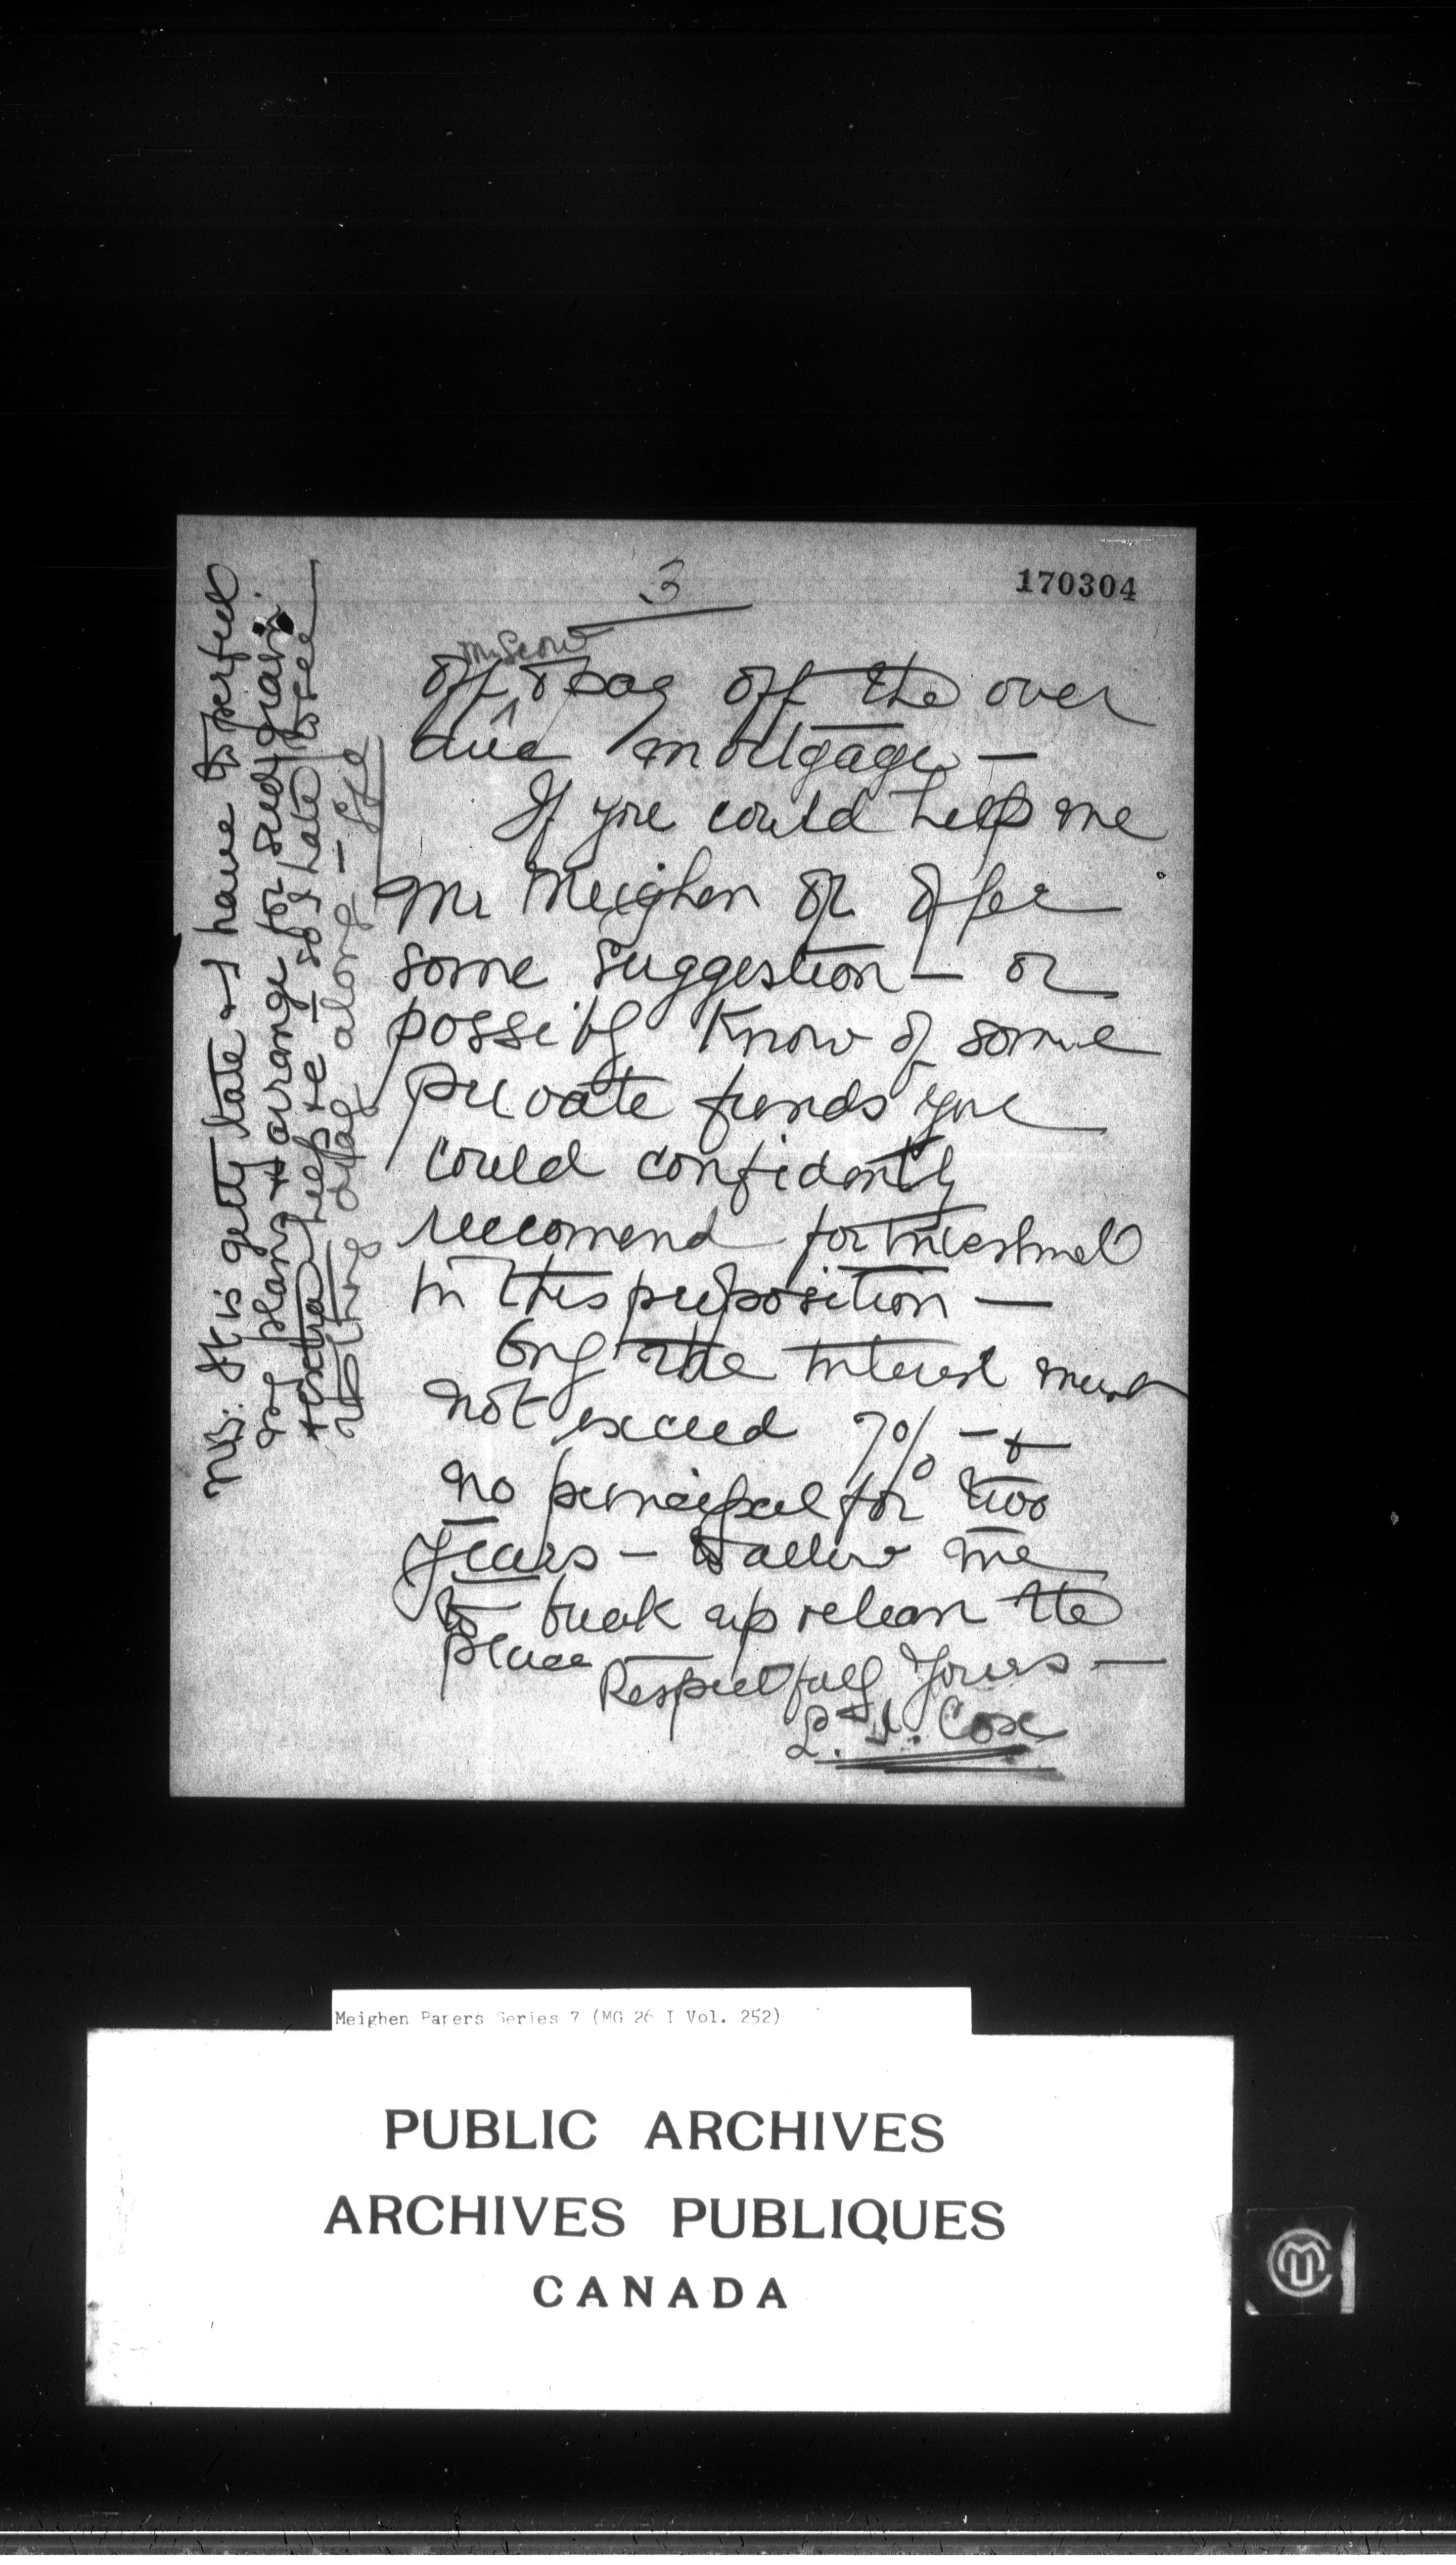 3
170304
Mr Scow
off to pay off the over
due mortgage —
If you could help me
Mr Meighen or offer
some suggestion — or
possibly know of some
private funds you
could confidently
recomend for investment
in this proposition —
Only the interest must
not exceed 7% — &
no principal for two
years — to allow me
to break up & clean the
place
Respectfully Yours —
L. Cox
NB: It is getting late & I have to perfect
my plans & arrange for seed grain
& extra help etc — so I hate to see
things drag along —
Meighen Papers Series 7 (MG 26 I Vol. 252)
PUBLIC ARCHIVES
ARCHIVES PUBLIQUES
CANADA